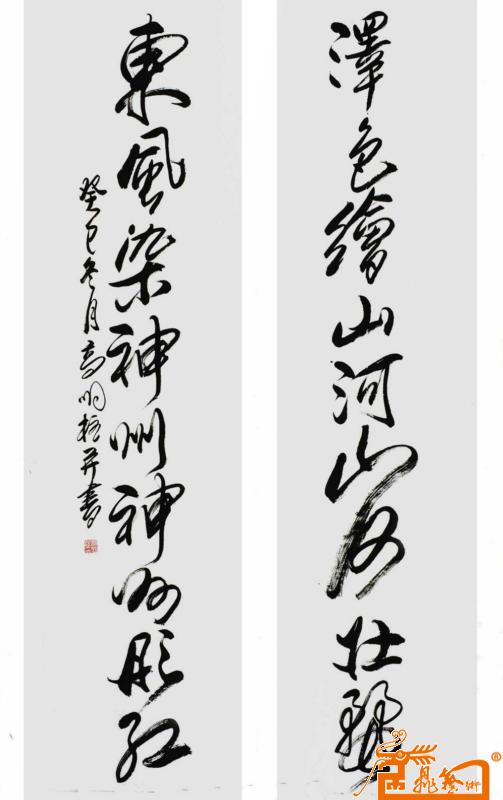 澤色繪山河山河壯麗
東風染神州神州彤紅
癸巳冬月高明并書